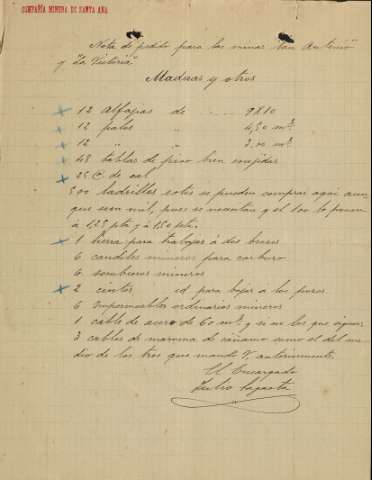 COMPAÑÍA MINERA DE SANTA ANA
Nota de pedido para las minas "San Antonio"
y "La Victoria"
Maderas y otros
12 alfagias de 9x10
12 palos " 4,50 mts
12 " " 3.00 mts
48 tablas de pino bien cogidas
25 @ de cal
500 ladrillos estos se pueden comprar aquí aun
que sean mil, pues se necesitan y el 100 lo ponen
á 1,25 pta y á 1.50 pta.
1 tierra para trabajar á dos brazos
6 candiles mineros para carburo
6 sombreros mineros
2 cintos id para bajar a los pozos
6 Impermeables ordinarios mineros
1 cable de acero de 60 mts y si no los que siguen
3 cables de maroma de cañamo como el del me
dio de los tres que mandó V. anteriormente.
El Encargado
Julio